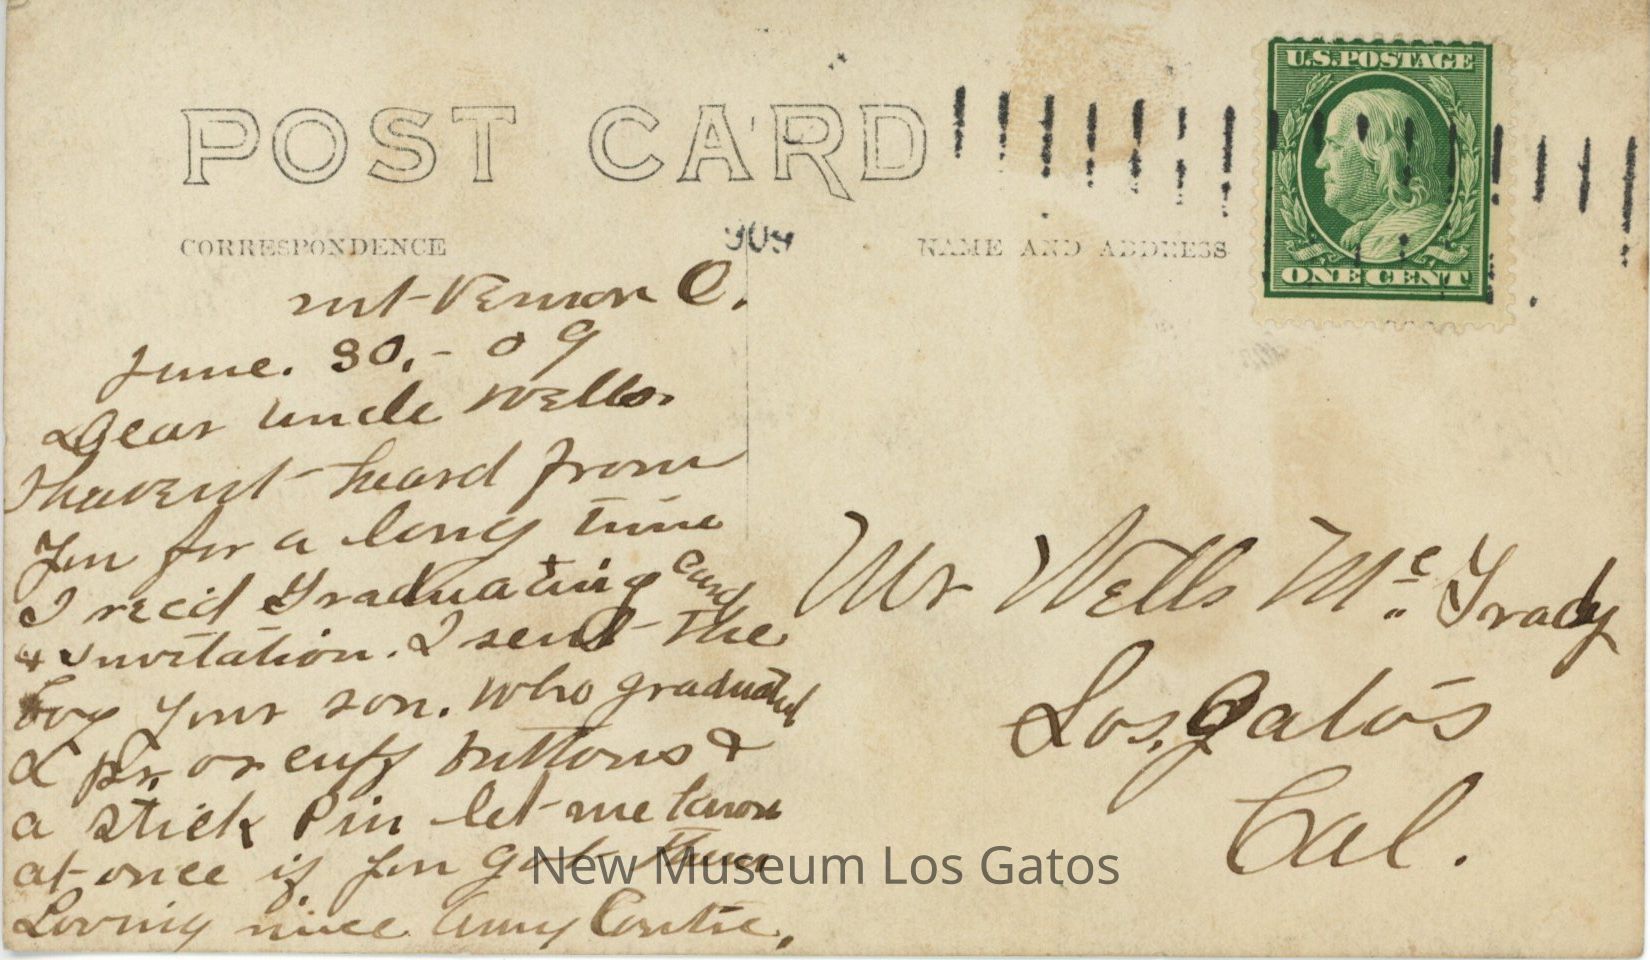 POST CARD
CORRESPONDENCE
909
NAME AND ADDRESS
U.S. POSTAGE
ONE CENT
mt-Vernon O.
June. 30.- 09
Dear uncle Wells.
I havent heard from
you for a long time
I recid Graduating Card
& invitation. I sent the
boy your son. who graduated
pr. or cuff buttons &
a stick Pin let me know
at once if you got them
Loving niece Amy
Mr Wells Mc. Grady
Los. gatos
Cal.
New Museum Los Gatos